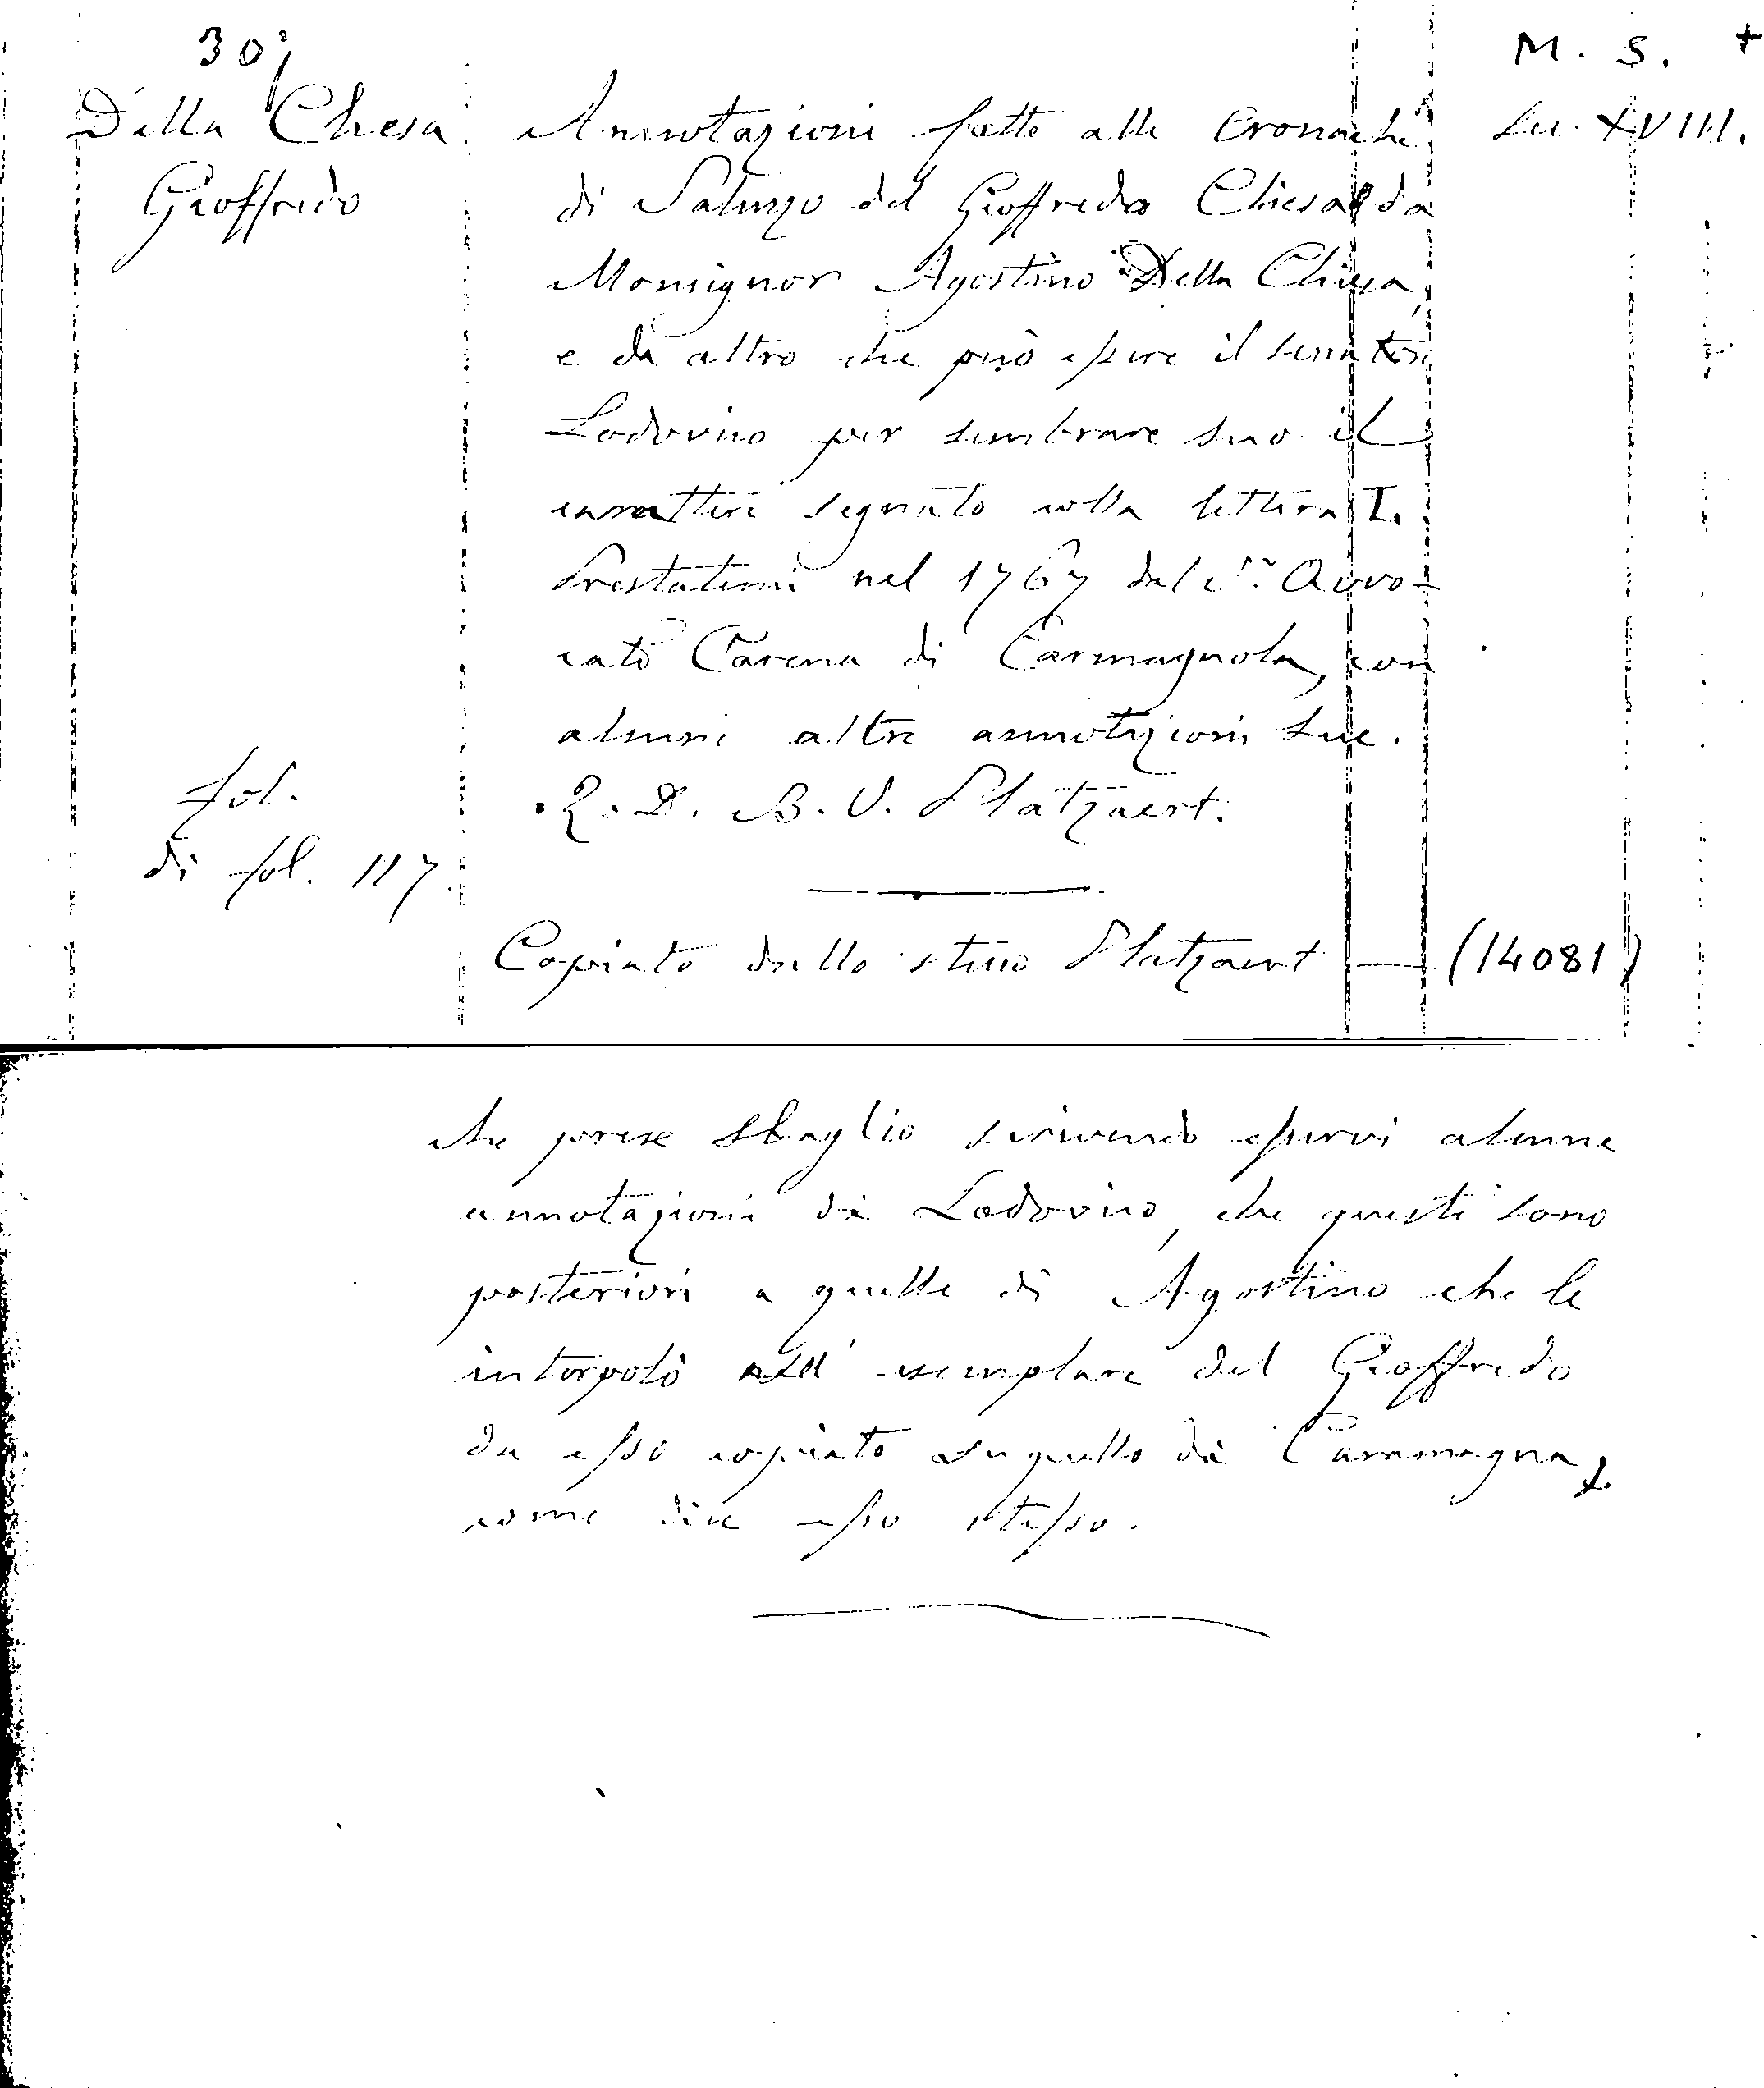 307
M. S. +
Della Chiesa
Gioffredo
Annotazioni fatte alle Cronache
Sec. XVIII.
di Saluzzo del Gioffredo Chiesa da
Monsignor Agostino Della Chiesa,
e da altro che può essere il senatore
Lodovico per sembrare suo il
carattere segnato colla lettera I.
Prestatemi nel 1767 dal Sr. Avvo-
cato Carena di Carmagnola, con
alcune altre annotazioni sue.
D. B. V. Platzaert.
fol.
di fol. 117.
Copiato dallo stesso Platzaert — (14081)
che prese sbaglio scrivendo esservi alcune
annotazioni di Lodovico, che queste sono
posteriori a quelle di Agostino che le
interpolò nell' esemplare del Gioffredo
da esso copiato su quello di Carmagna,
come dice esso stesso.